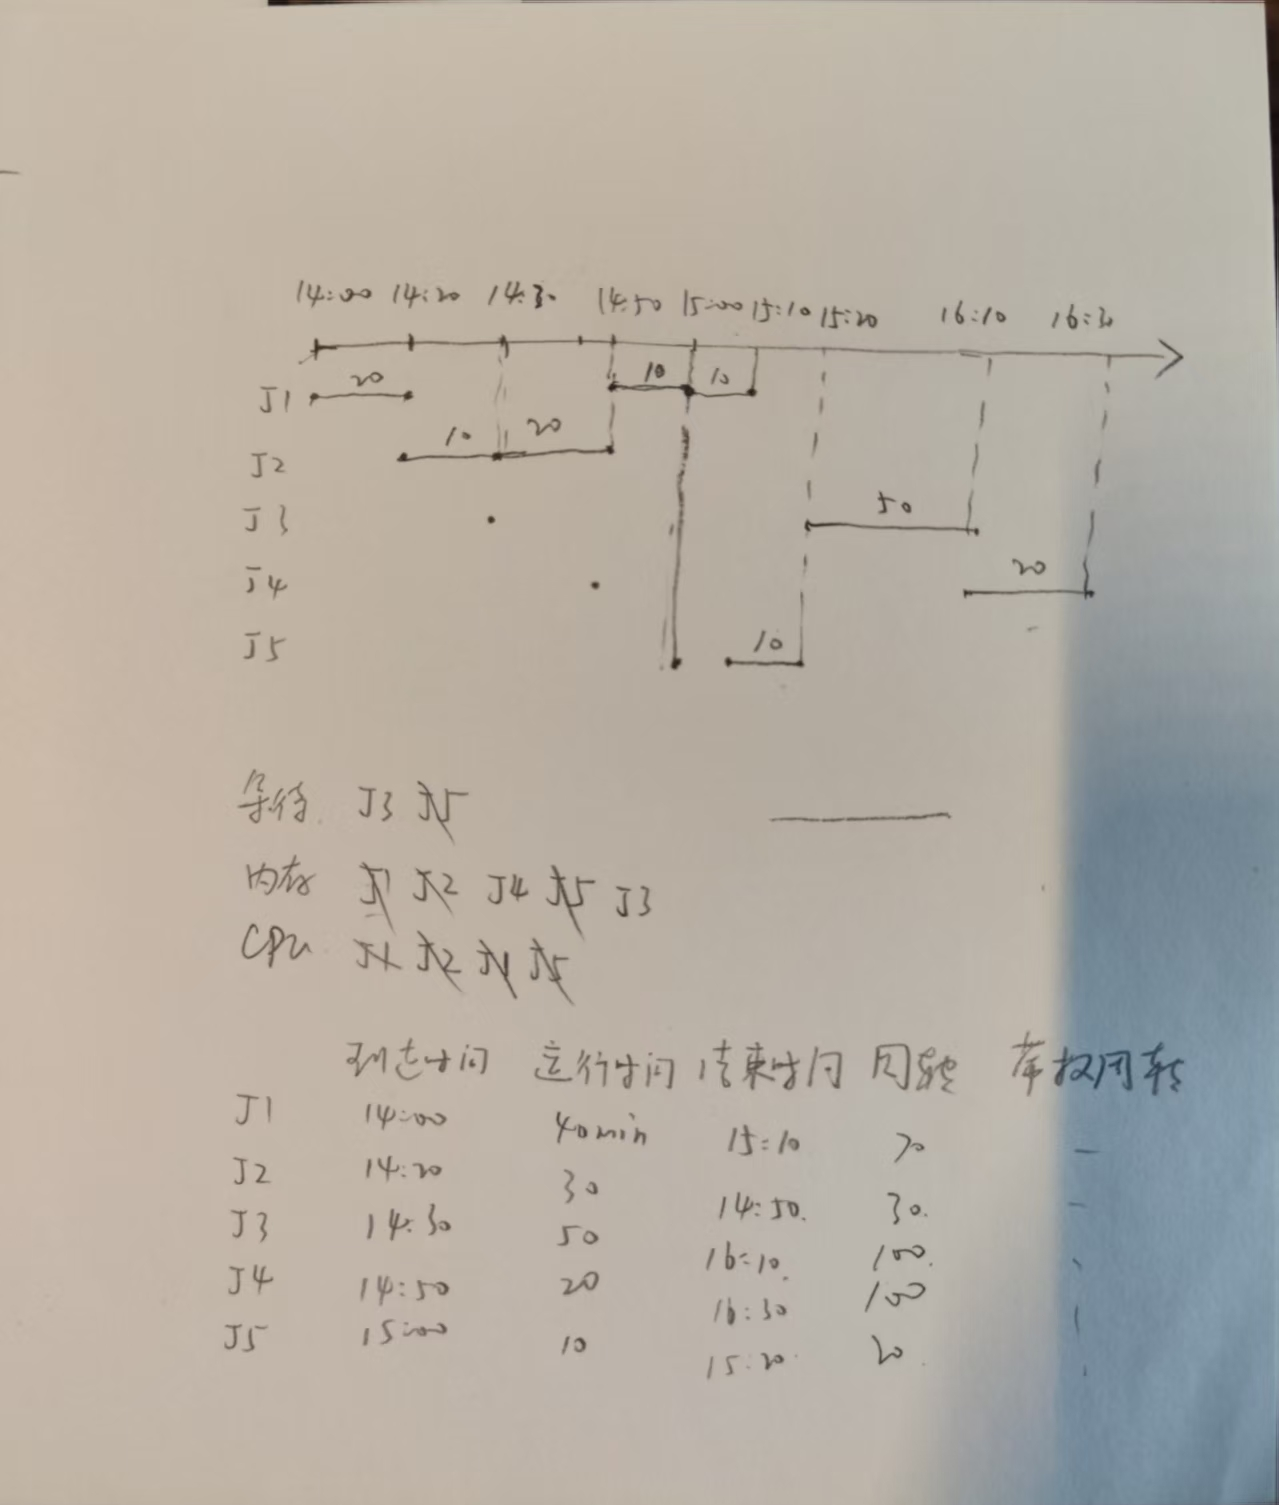 14:00 14:20 14:30 14:50 15:00 15:10 15:20 16:10 16:30
J1 20 10 10
J2 10 20
J3 50
J4 20
J5 10
等待 J3 J5
内存 J1 J2 J4 J5 J3
CPU J1 J2 J1 J5
到达时间 运行时间 结束时间 周转 带权周转
J1 14:00 40min 15:10 70 –
J2 14:20 30 14:50. 30. –
J3 14:30 50 16:10. 100.
J4 14:50 20 16:30 100
J5 15:00 10 15:20. 20.